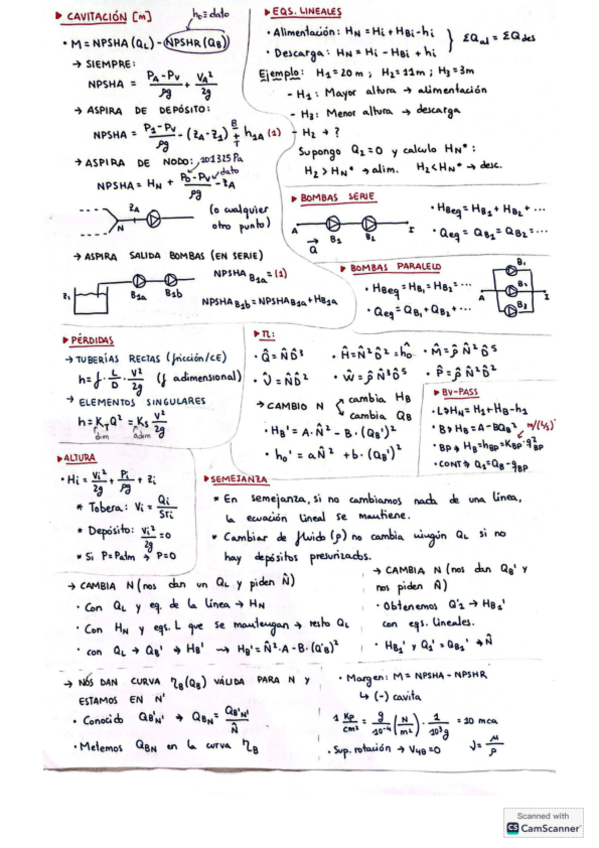 ► CAVITACIÓN [m]
h₀ ≡ dato
• M = NPSHA (Q_L) - NPSHR (Q_B)
→ SIEMPRE:
NPSHA = (P_A - P_V)/ρg + V_A²/2g
→ ASPIRA DE DEPÓSITO:
NPSHA = (P_1 - P_V)/ρg - (z_A - z_1) ∓ h_1A (1)
B
T
→ ASPIRA DE NODO: 101325 Pa
NPSHA = H_N + (P_0 - P_V)/ρg - z_A
dato
z_A
N
(o cualquier
otro punto)
→ ASPIRA SALIDA BOMBAS (EN SERIE)
z_1
B_1a B_1b
NPSHA_B1a = (1)
NPSHA_B1b = NPSHA_B1a + H_B1a
► EQS. LINEALES
• Alimentación: H_N = H_i + H_Bi - h_i
• Descarga: H_N = H_i - H_Bi + h_i
ΣQ_al = ΣQ_des
Ejemplo: H_1 = 20 m ; H_2 = 11 m ; H_3 = 3m
- H_1: Mayor altura → alimentación
- H_3: Menor altura → descarga
- H_2 → ?
Supongo Q_2 = 0 y calculo H_N*:
H_2 > H_N* → alim. H_2 < H_N* → desc.
► BOMBAS SERIE
A B_1 B_2 I
Q
• H_Beq = H_B1 + H_B2 + ...
• Q_eq = Q_B1 = Q_B2 = ...
► BOMBAS PARALELO
• H_Beq = H_B1 = H_B2 = ...
• Q_eq = Q_B1 + Q_B2 + ...
A B_1 B_2 B_3 I
► PÉRDIDAS
→ TUBERÍAS RECTAS (fricción/CE)
h = f · L/D · V²/2g (f adimensional)
→ ELEMENTOS SINGULARES
h = K_T Q² = K_S V²/2g
dim adim
► TL:
• Q̂ = N̂ D̂³ • Ĥ = N̂² D̂² = ĥ₀ • M̂ = ρ̂ N̂² D̂⁵
• Û = N̂ D̂² • Ŵ = ρ̂ N̂³ D̂⁵ • P̂ = ρ̂ N̂² D̂²
→ CAMBIO N
cambia H_B
cambia Q_B
• H_B' = A · N̂² - B · (Q_B')²
• h₀' = a N̂² + b · (Q_B')²
► BY-PASS
• L → H_N = H_1 + H_B - h_1
• B → H_B = A - BQ_B² m/(L/s)²
• BP → H_B = h_BP = K_BP · q_BP²
• CONT → Q_1 = Q_B - q_BP
► ALTURA
• H_i = V_i²/2g + P_i/ρg + z_i
* Tobera: V_i = Q_i/S_Ti
* Depósito: V_i²/2g = 0
* Si P = Patm → P = 0
► SEMEJANZA
* En semejanza, si no cambiamos nada de una línea,
la ecuación lineal se mantiene.
* Cambiar de fluido (ρ) no cambia ningún Q_L si no
hay depósitos presurizados.
→ CAMBIA N (nos dan un Q_L y piden N̂)
• Con Q_L y eq. de la línea → H_N
• Con H_N y eqs. L que se mantengan → resto Q_L
• con Q_L → Q_B' → H_B' → H_B' = N̂² · A - B · (Q_B')²
→ CAMBIA N (nos dan Q_B' y
nos piden N̂)
• Obtenemos Q'_1 → H_B1'
con eqs. lineales.
• H_B1' y Q_1' = Q_B1' → N̂
→ NOS DAN CURVA η_B (Q_B) VÁLIDA PARA N Y
ESTAMOS EN N'
• Conocido Q_B'N' → Q_BN = Q_B'N'/N̂
• Metemos Q_BN en la curva η_B
• Margen: M = NPSHA - NPSHR
↳ (-) cavita
1 Kp/cm² = g/10⁻⁴ (N/m²) · 1/10³g = 10 mca
• Sup. rotación → V_4θ = 0 ν = μ/ρ
Scanned with
CS CamScanner